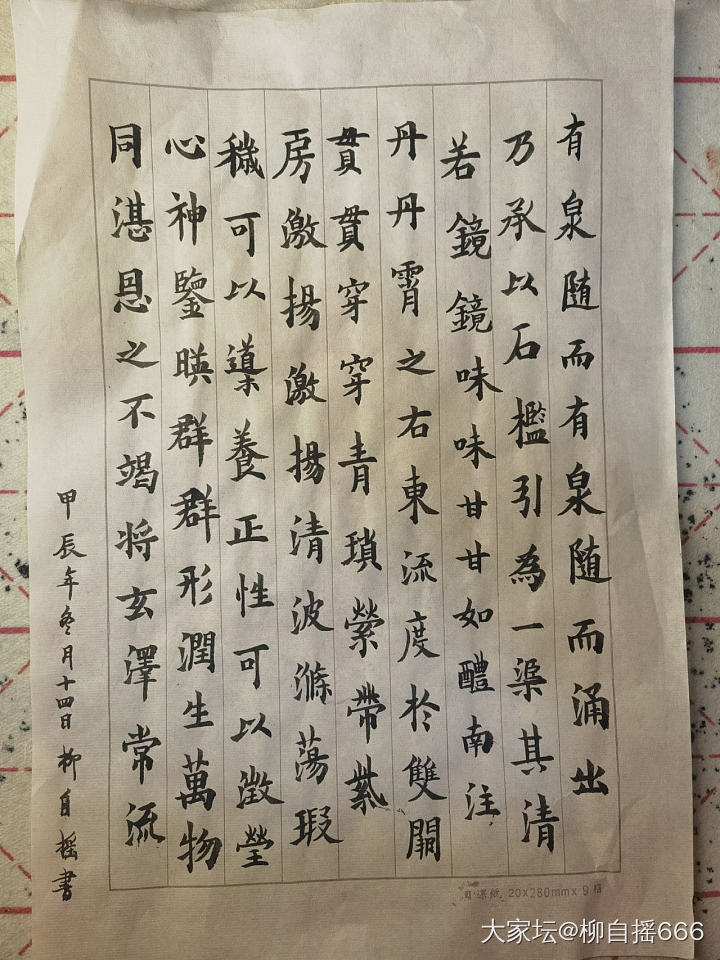 有泉随而有泉随而涌出
乃承以石檻引為一渠其清
若鏡鏡味味甘甘如醴南注
丹丹霄之右東流度於雙闕
貫貫穿穿青瑣縈帶紫
房激揚激揚清波滌蕩瑕
穢可以導養正性可以澂瑩
心神鑒暎群群形潤生萬物
同湛恩之不竭将玄澤常流
甲辰年冬月十四日柳自摇書
日课纸 20X280mmx 9格
大家坛@柳自摇666